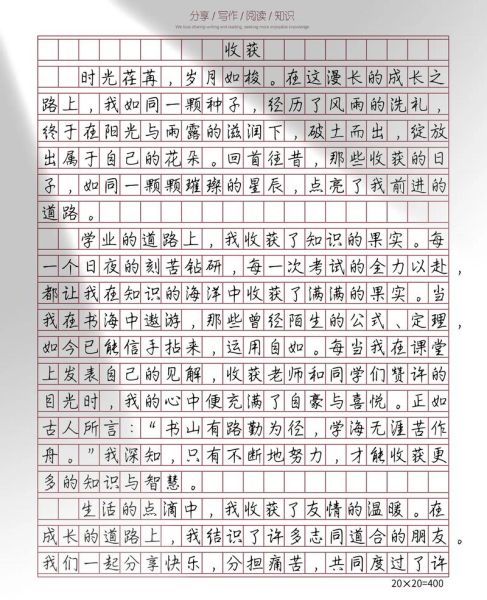 分享/写作/阅读/知识
We love sharing writing and reading, seeking more enjoyable knowledge.
收获
时光荏苒，岁月如梭。在这漫长的成长之
路上，我如同一颗种子，经历了风雨的洗礼，
终于在阳光与雨露的滋润下，破土而出，绽放
出属于自己的花朵。回首往昔，那些收获的日
子，如同一颗颗璀璨的星辰，点亮了我前进的
道路。
学业的道路上，我收获了知识的果实。每
一个日夜的刻苦钻研，每一次考试的全力以赴，
都让我在知识的海洋中收获了满满的果实。当
我在书海中遨游，那些曾经陌生的公式、定理，
如今已能信手拈来，运用自如。每当我在课堂
上发表自己的见解，收获老师和同学们赞许的
目光时，我的心中便充满了自豪与喜悦。正如
古人所言：“书山有路勤为径，学海无涯苦作
舟。”我深知，只有不断地努力，才能收获更
多的知识与智慧。
生活的点滴中，我收获了友情的温暖。在
成长的道路上，我结识了许多志同道合的朋友。
我们一起分享快乐，分担痛苦，共同度过了许
20×20=400